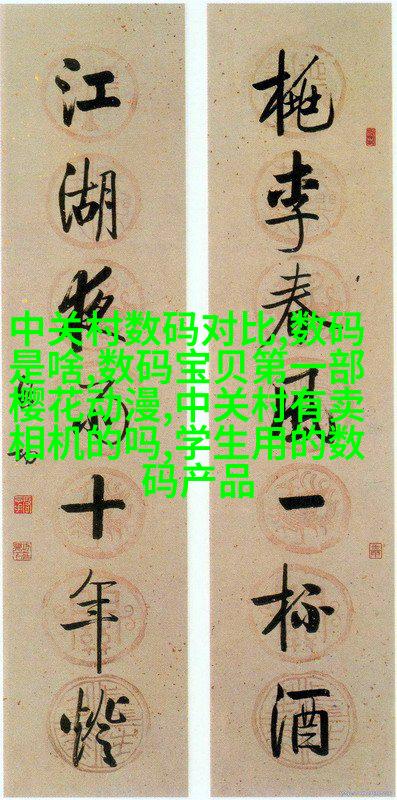 桃李春風一杯酒
江湖夜雨十年燈
中关村数码对比,数码
是啥,数码宝贝第一部
樱花动漫,中关村有卖
相机的吗,学生用的数
码产品